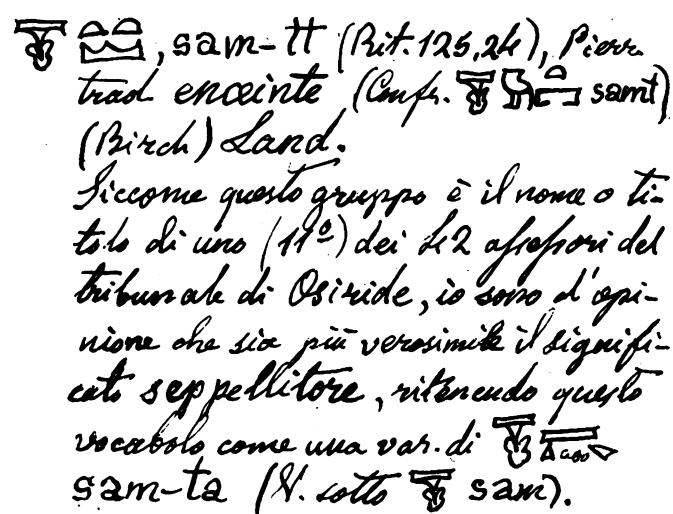 , sam-tt (Rit. 125,24), Pierr.
trad. enceinte (Confr. samt)
(Birch) Land.
Siccome questo gruppo è il nome o ti-
tolo di uno (11º) dei 42 assessori del
tribunale di Osiride, io sono d'opi-
nione che sia più verosimile il signifi-
cato seppellitore, ritenendo questo
vocabolo come una var. di
sam-ta (V. sotto sam).